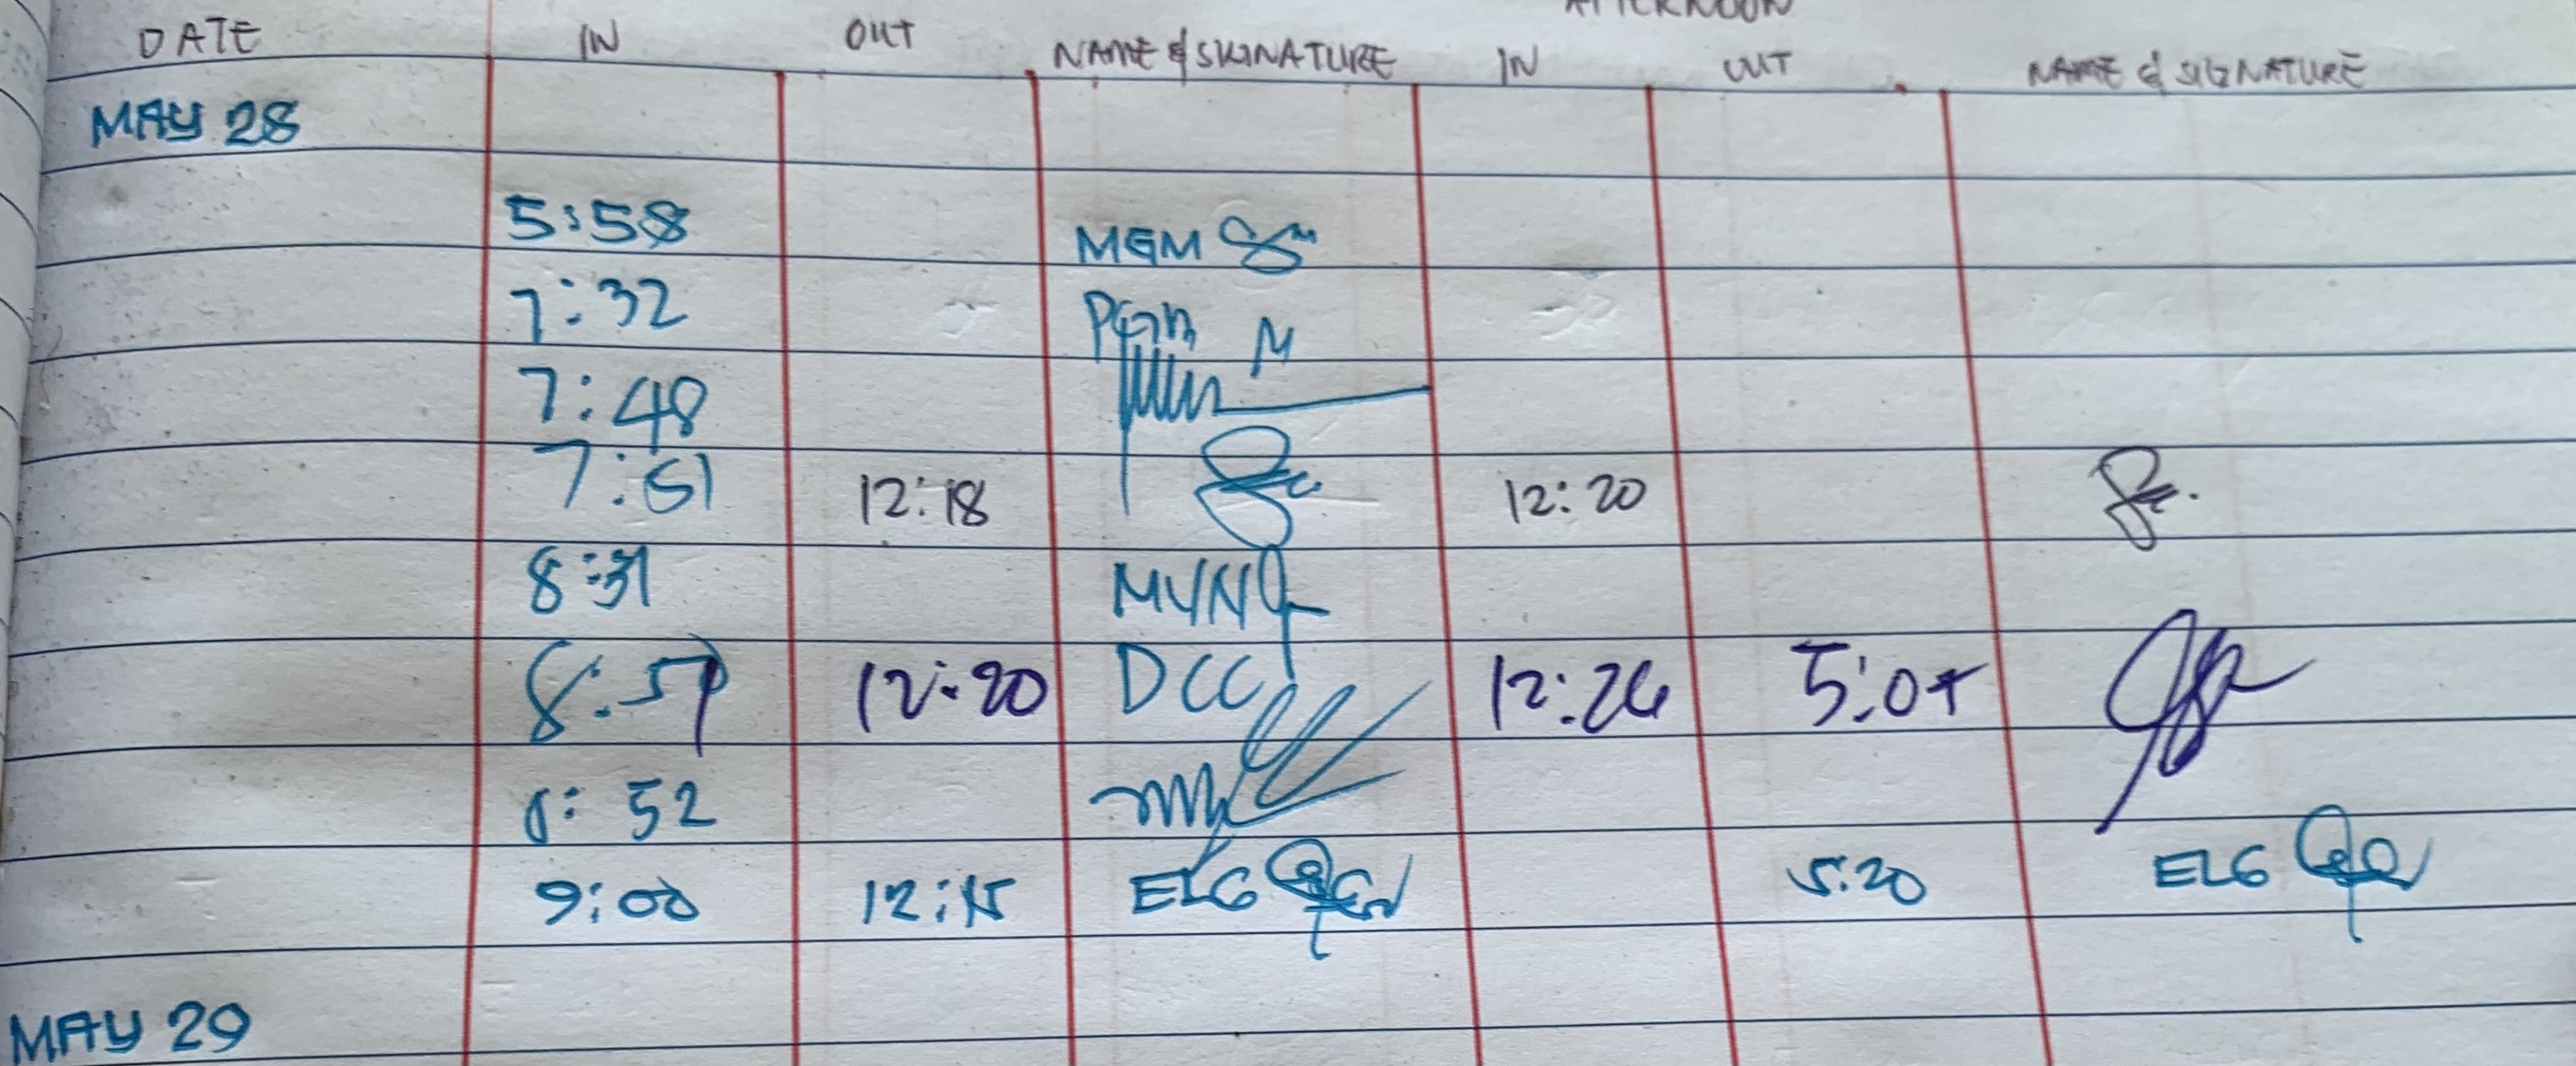 AFTERNOON
DATE IN OUT NAME & SIGNATURE IN OUT NAME & SIGNATURE
MAY 28
5:58 MGM
7:32 PGM
7:48
7:51 12:18 12:20
8:31 MVN
12:20 DCC 12:26
8:52
9:00 12:15 ELG 5:20 ELG
MAY 29